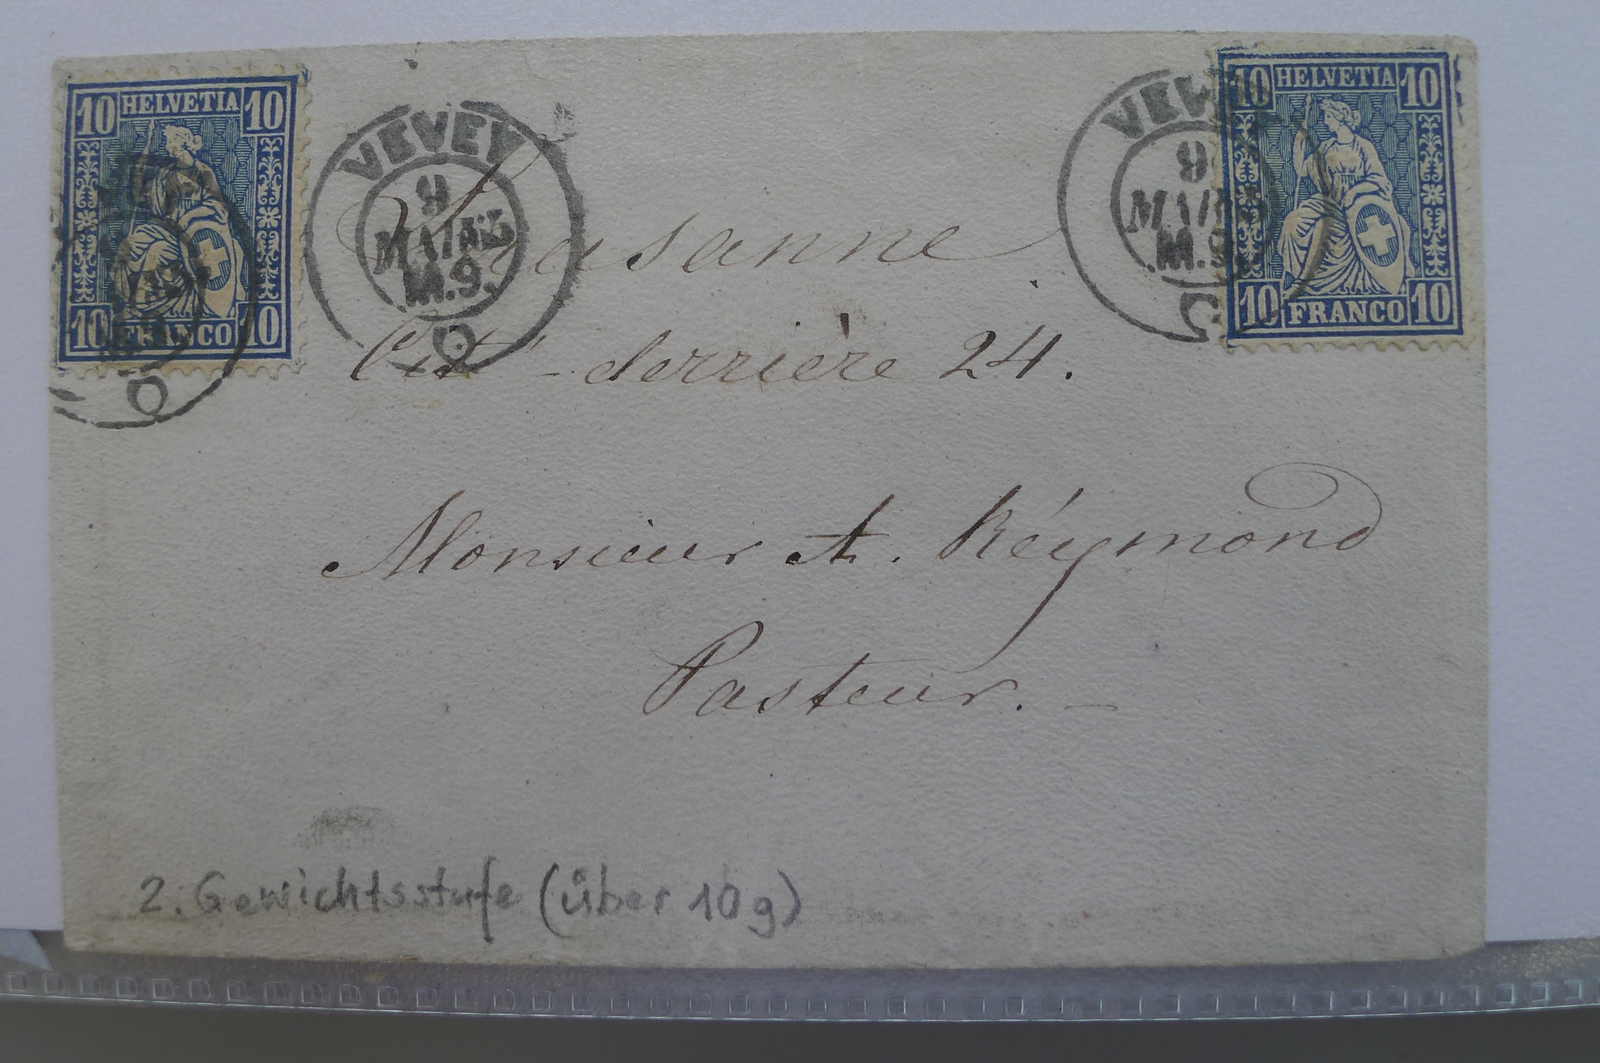 10 HELVETIA 10
10 FRANCO 10
VEVEY
9
MARS
M.9.
VEVEY
9
MARS
M.9
10 HELVETIA 10
10 FRANCO 10
Lausanne
Cité-derrière 24.
Monsieur A. Réymond
Pasteur. -
2. Gewichtsstufe (über 10g)